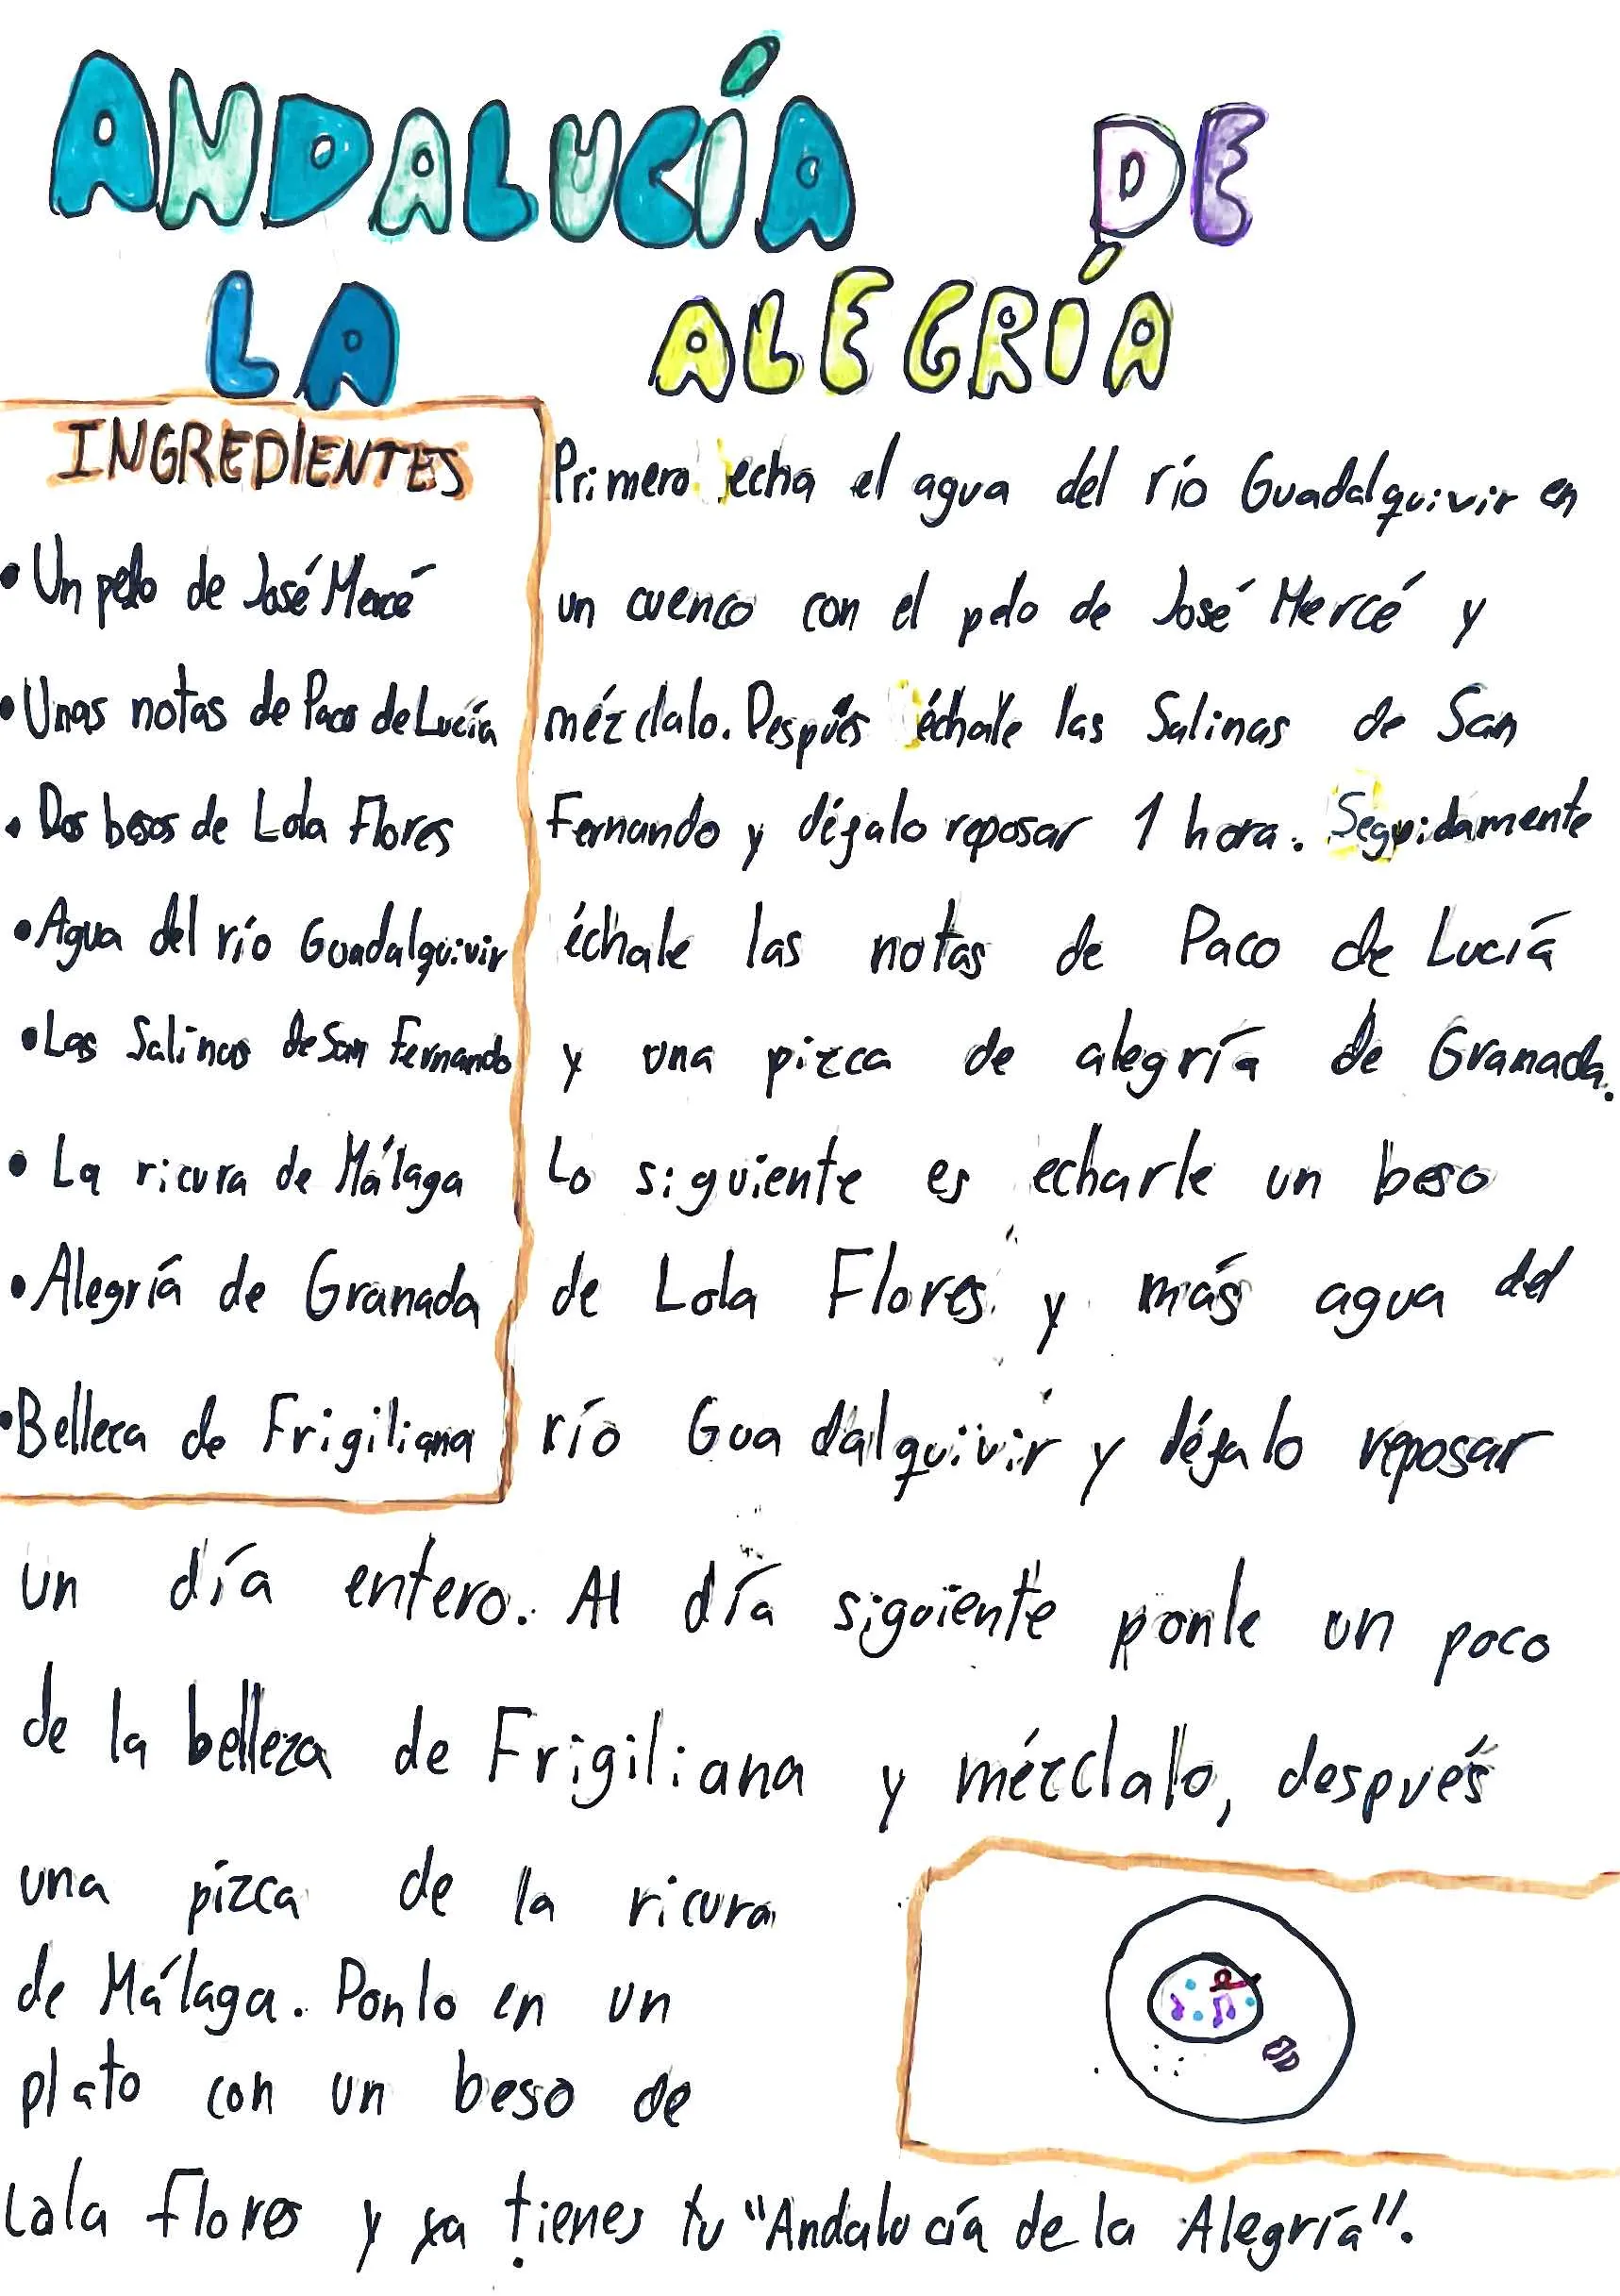 ANDALUCÍA DE
LA ALEGRÍA
INGREDIENTES
• Un pelo de José Mercé
• Unas notas de Paco de Lucía
• Dos besos de Lola Flores
• Agua del río Guadalquivir
• Las Salinas de San Fernando
• La ricura de Málaga
• Alegría de Granada
• Belleza de Frigiliana
Primero echa el agua del río Guadalquivir en
un cuenco con el pelo de José Mercé y
mézclalo. Después échale las Salinas de San
Fernando y déjalo reposar 1 hora. Seguidamente
échale las notas de Paco de Lucía
y una pizca de alegría de Granada.
Lo siguiente es echarle un beso
de Lola Flores y más agua del
río Guadalquivir y déjalo reposar
un día entero. Al día siguiente ponle un poco
de la belleza de Frigiliana y mézclalo, después
una pizca de la ricura
de Málaga. Ponlo en un
plato con un beso de
Lola Flores y ya tienes tu "Andalucía de la Alegría".